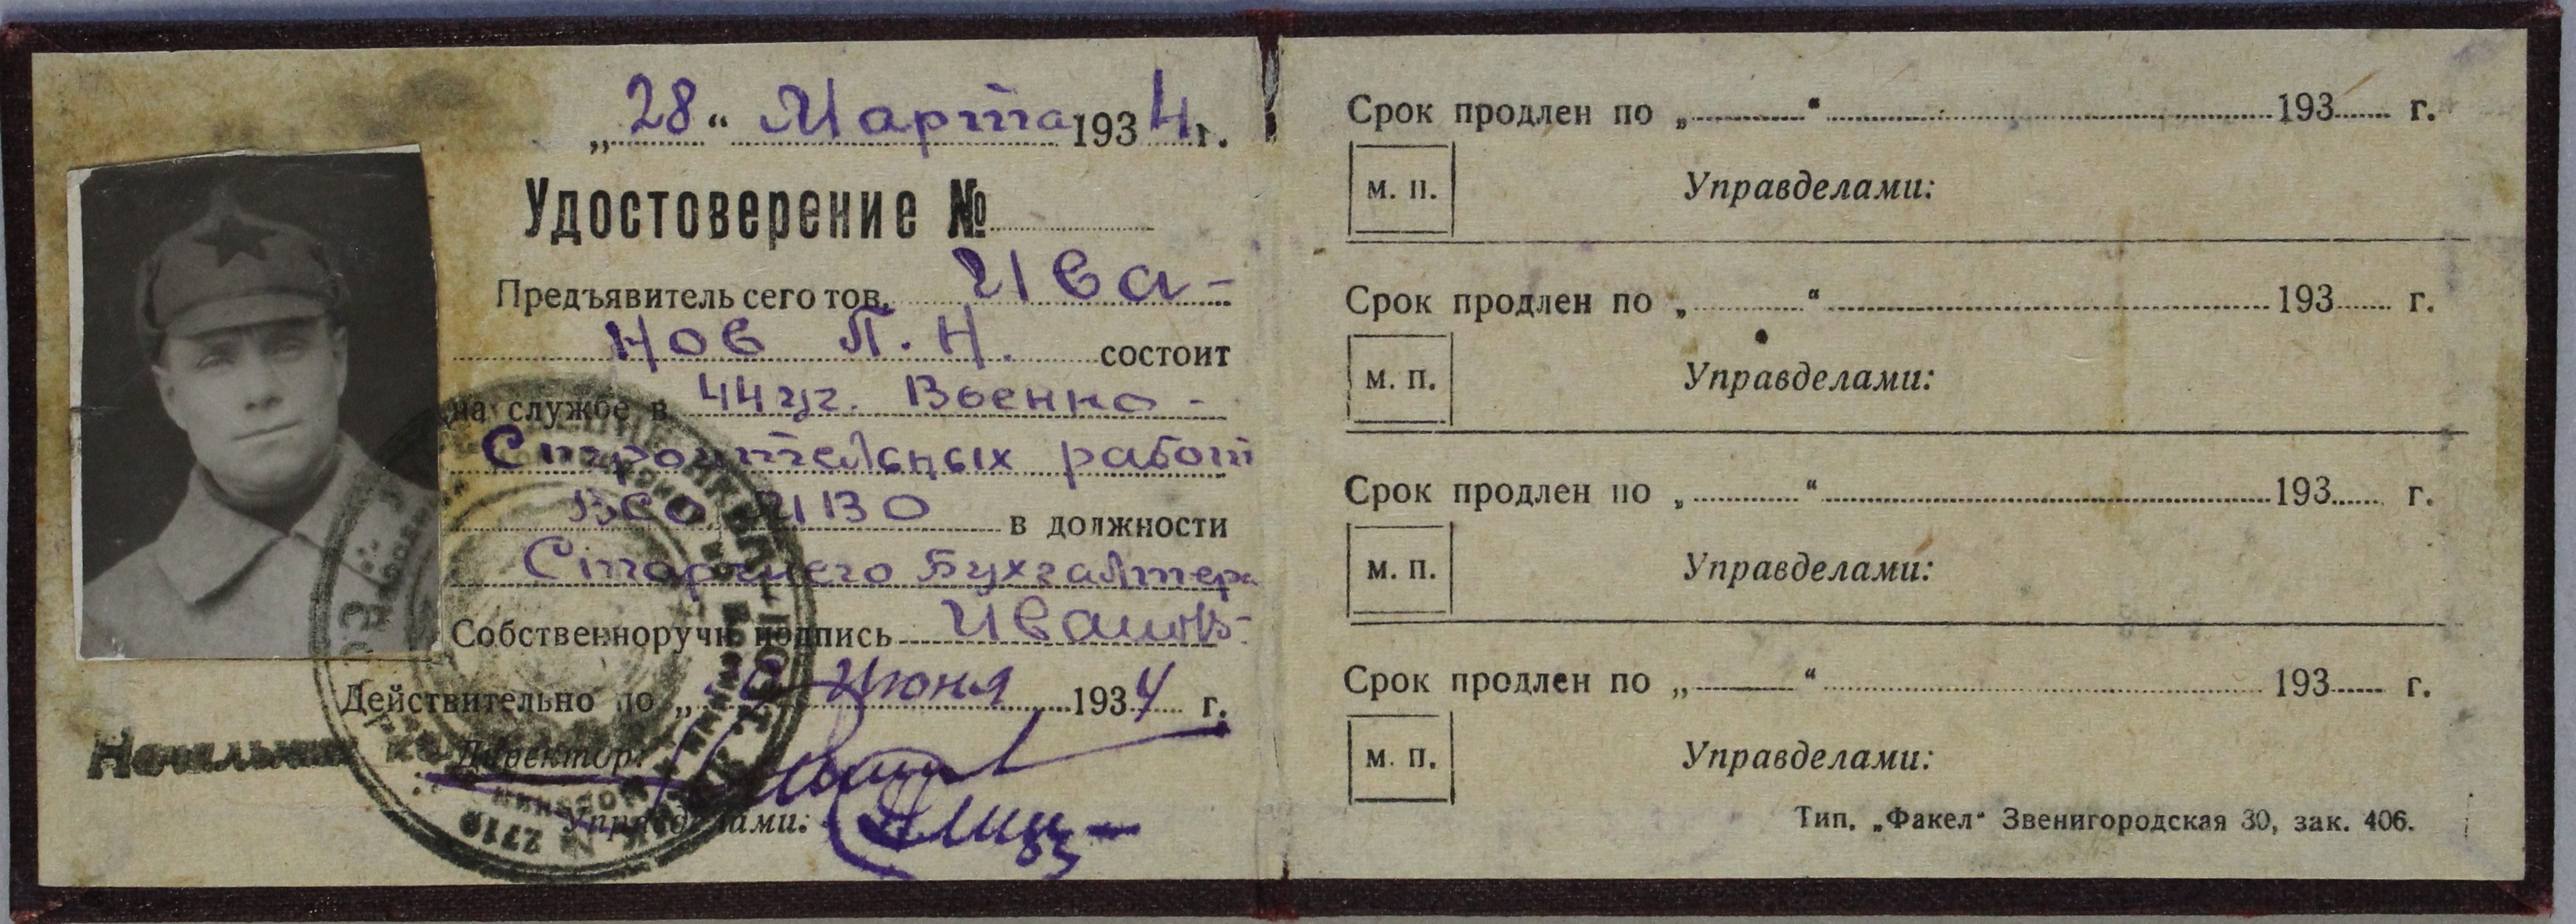 „28“ Марта 1934 г.
Удостоверение №
Предъявитель сего тов. Ива-
нов П. Н. состоит
на службе в 44 уч. Военно-
Строительных работ
ВСО ЛВО в должности
Старшего Бухгалтера
Собственноручн подпись Иванов
Действительно по „ Июня 1934 г.
Начальник
Директор:
Управделами:
№ 2719
Срок продлен по „ “ 193 г.
М. П. Управделами:
Срок продлен по „ “ 193 г.
М. П. Управделами:
Срок продлен по „ “ 193 г.
М. П. Управделами:
Срок продлен по „ “ 193 г.
М. П. Управделами:
Тип. „Факел“ Звенигородская 30, зак. 406.